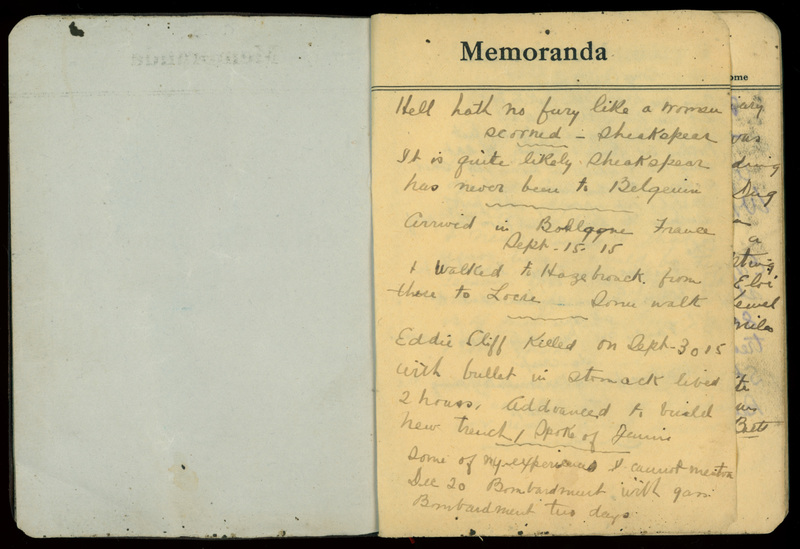 Memoranda
Hell hath no fury like a women
scorned - Sheakspear
It is quite likely Sheakspear
has never been to Belgeium
Arrived in Bollogne France
Sept. 15. 15
& walked to Hazebrouck. from
there to Locre - Some walk
Eddie Cliff Killed on Sept-30 15
with bullet in stomack lived
2 hours. Addvanced to build
new trench / Spoke of
Some of my experiences I cannot mention
Dec 20 Bombardment with gass
Bombardment two days
ome
Eloi
miles